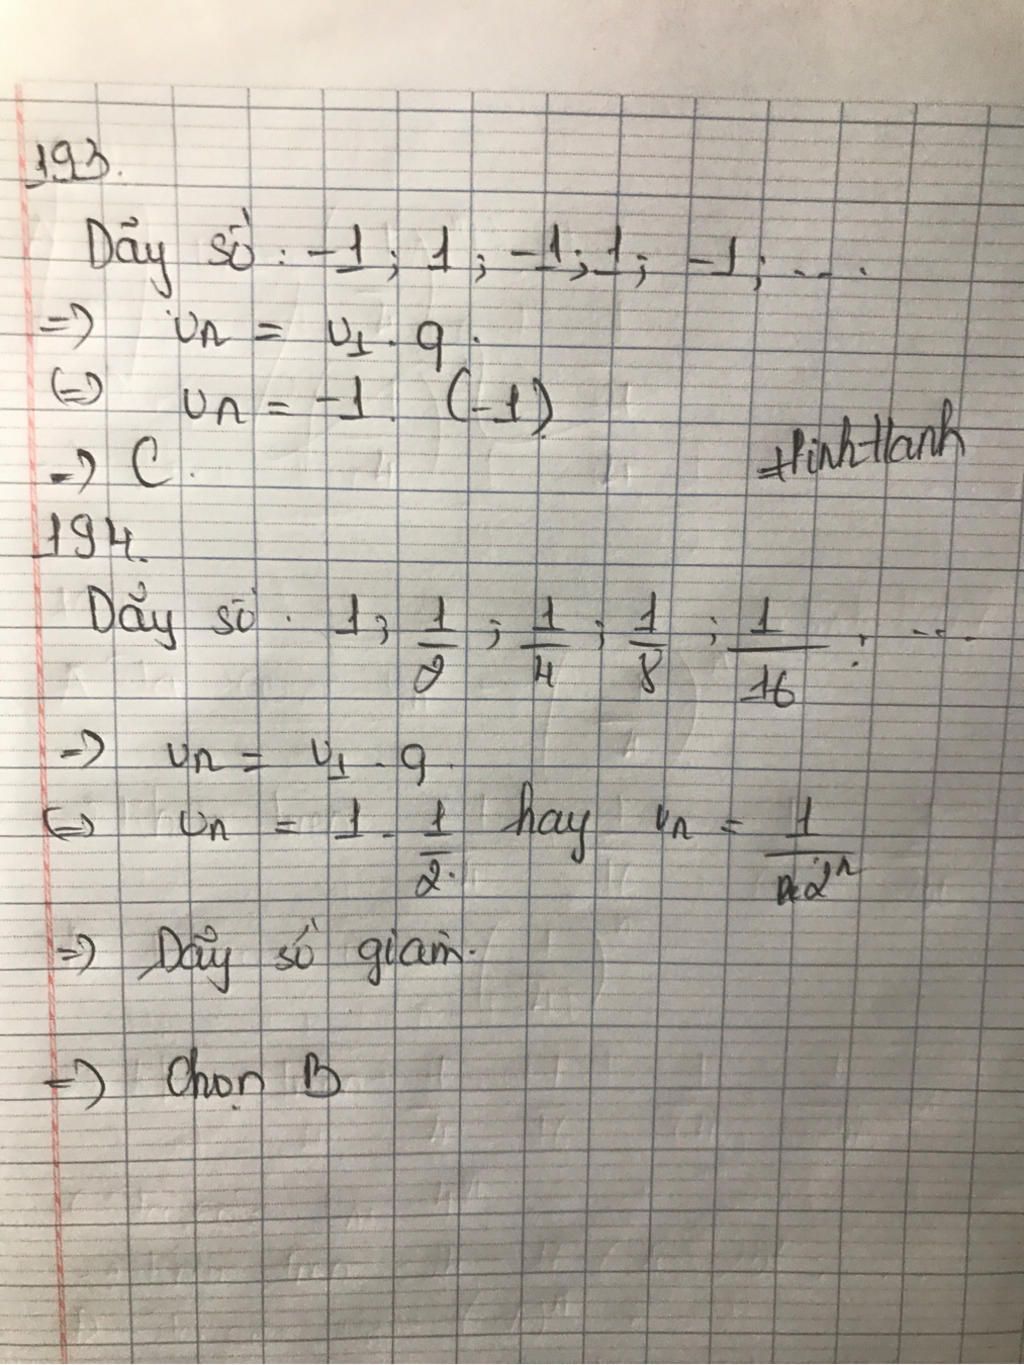 193.
Dãy số : -1 ; 1 ; -1 ; 1 ; -1 ; ....
=> un = u1 . q .
(=) un = -1 . (-1)
=> C .
194.
Dãy số . 1 ; 1/2 ; 1/4 ; 1/8 ; 1/16 ; ....
=> un = u1 . q .
(=) un = 1 . 1/2 . hay un = 1/2^n
=> Dãy số giảm .
=> Chọn B